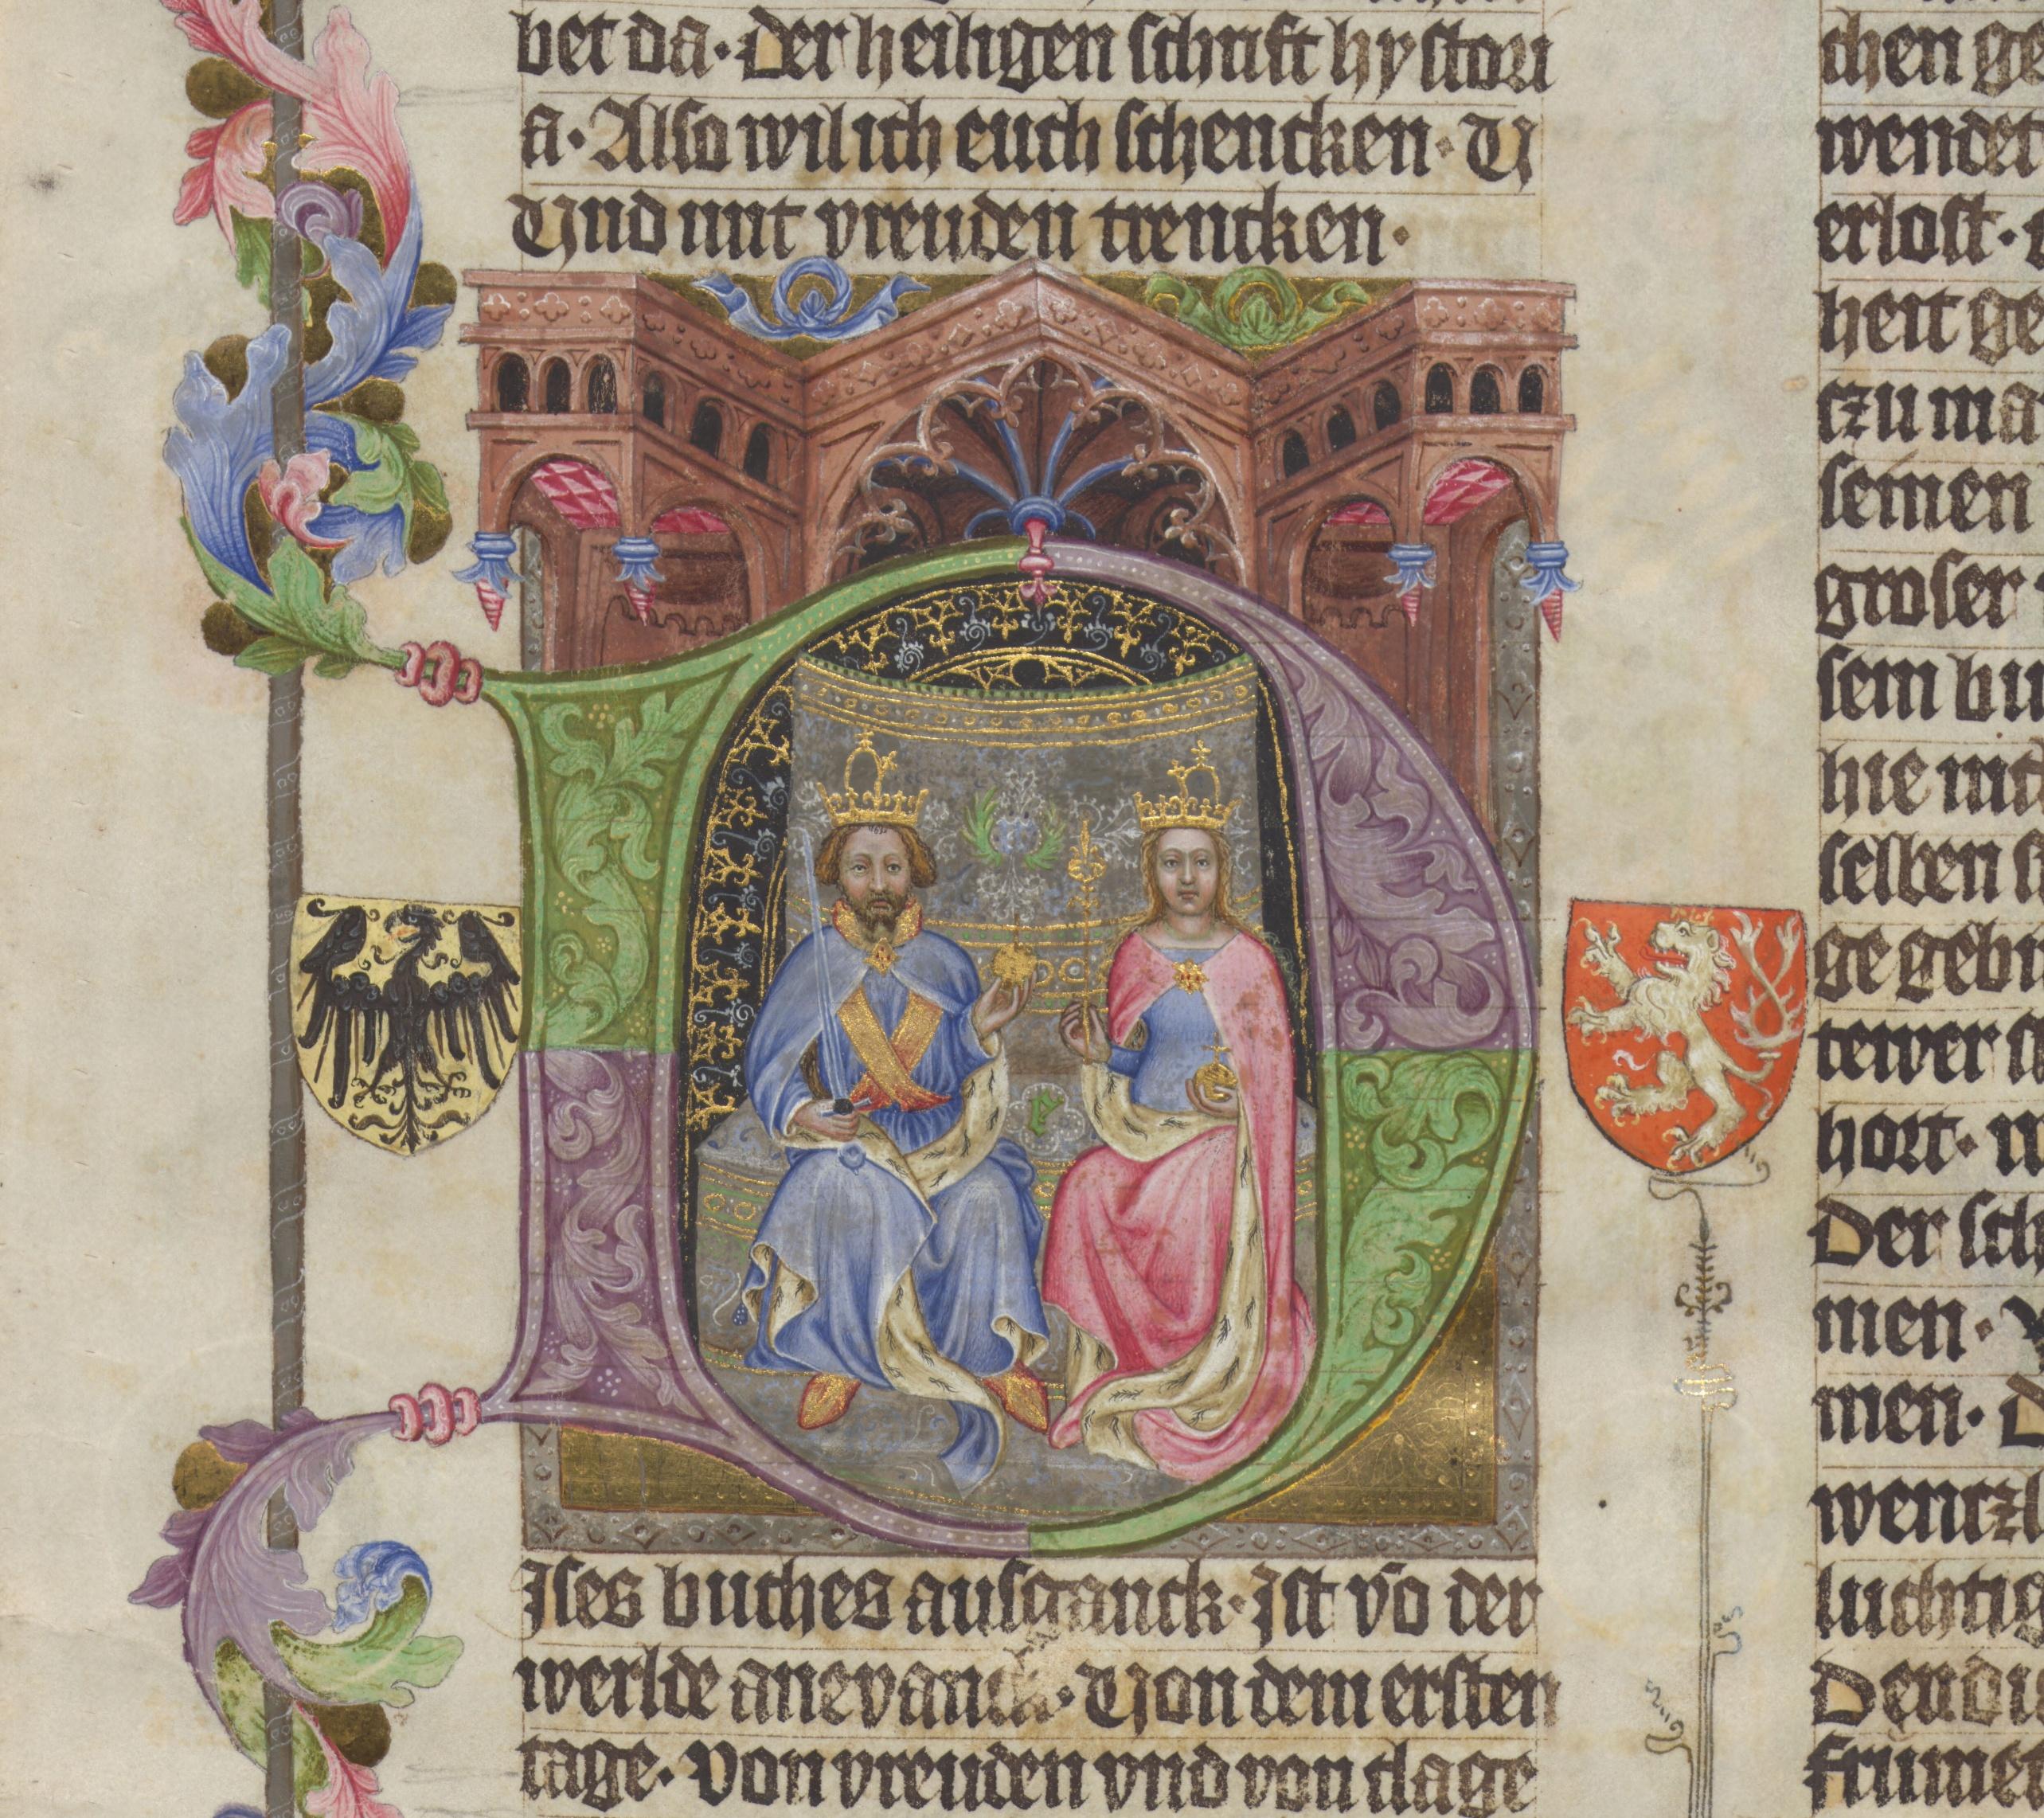 bet da. Der heiligen schrift hystori
a. Also wil ich euch schencken. U
Und mit vreuden trencken.
D
e
Ises buches ausganck. Ist vo̅ der
werlde anevanck. Von dem ersten
tage. Von vreuden vnd von clage
chen ge
wendet
erlost.
heit ge
czu ma
seinen
groser
sem bu
hie mit
selben s
ge gebu
tewer
hort.
Der sch
men.
men. D
wenczl
luchtig
Den di
frume